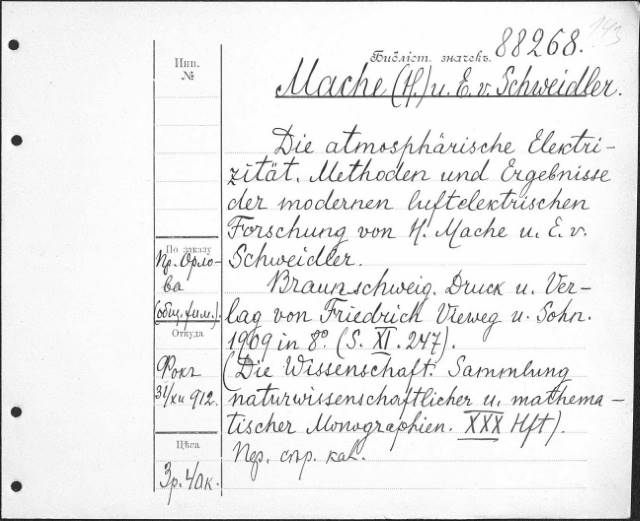 143
Библіот. значекъ. 88268.
Инв.
№
Mache (H.) u. E. v. Schweidler.
Die atmosphärische Elektri-
zität. Methoden und Ergebnisse
der modernen luftelektrischen
Forschung von H. Mache u. E. v.
Schweidler.
Braunschweig. Druck u. Ver-
lag von Friedrich Vieweg u. Sohn.
1909 in 8° (S. XI. 247).
(Die Wissenschaft. Sammlung
naturwissenschaftlicher u. mathema-
tischer Monographien. XXX Hft).
По заказу
Пр. Орло-
ва
(общ. физ.).
Откуда
Фокъ
31/XII 912.
Цѣна
3р. 40к.